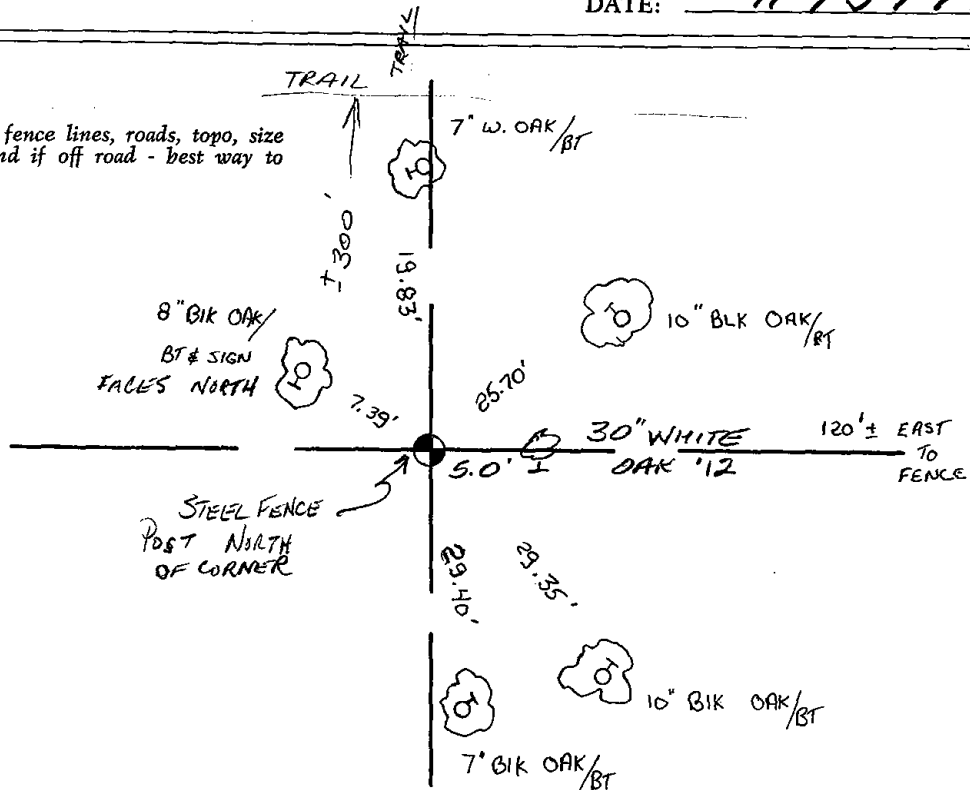 DATE:
TRAIL
TRAIL
fence lines, roads, topo, size
nd if off road - best way to
7" W. OAK/BT
± 300'
19.83'
8" BlK OAK/
BT & SIGN
FACES NORTH
10" BLK OAK/BT
7.39'
25.70'
5.0'
30" WHITE
OAK '12
120'± EAST
TO
FENCE
STEEL FENCE
POST NORTH
OF CORNER
29.40'
29.35'
10" BlK OAK/BT
7" BlK OAK/BT